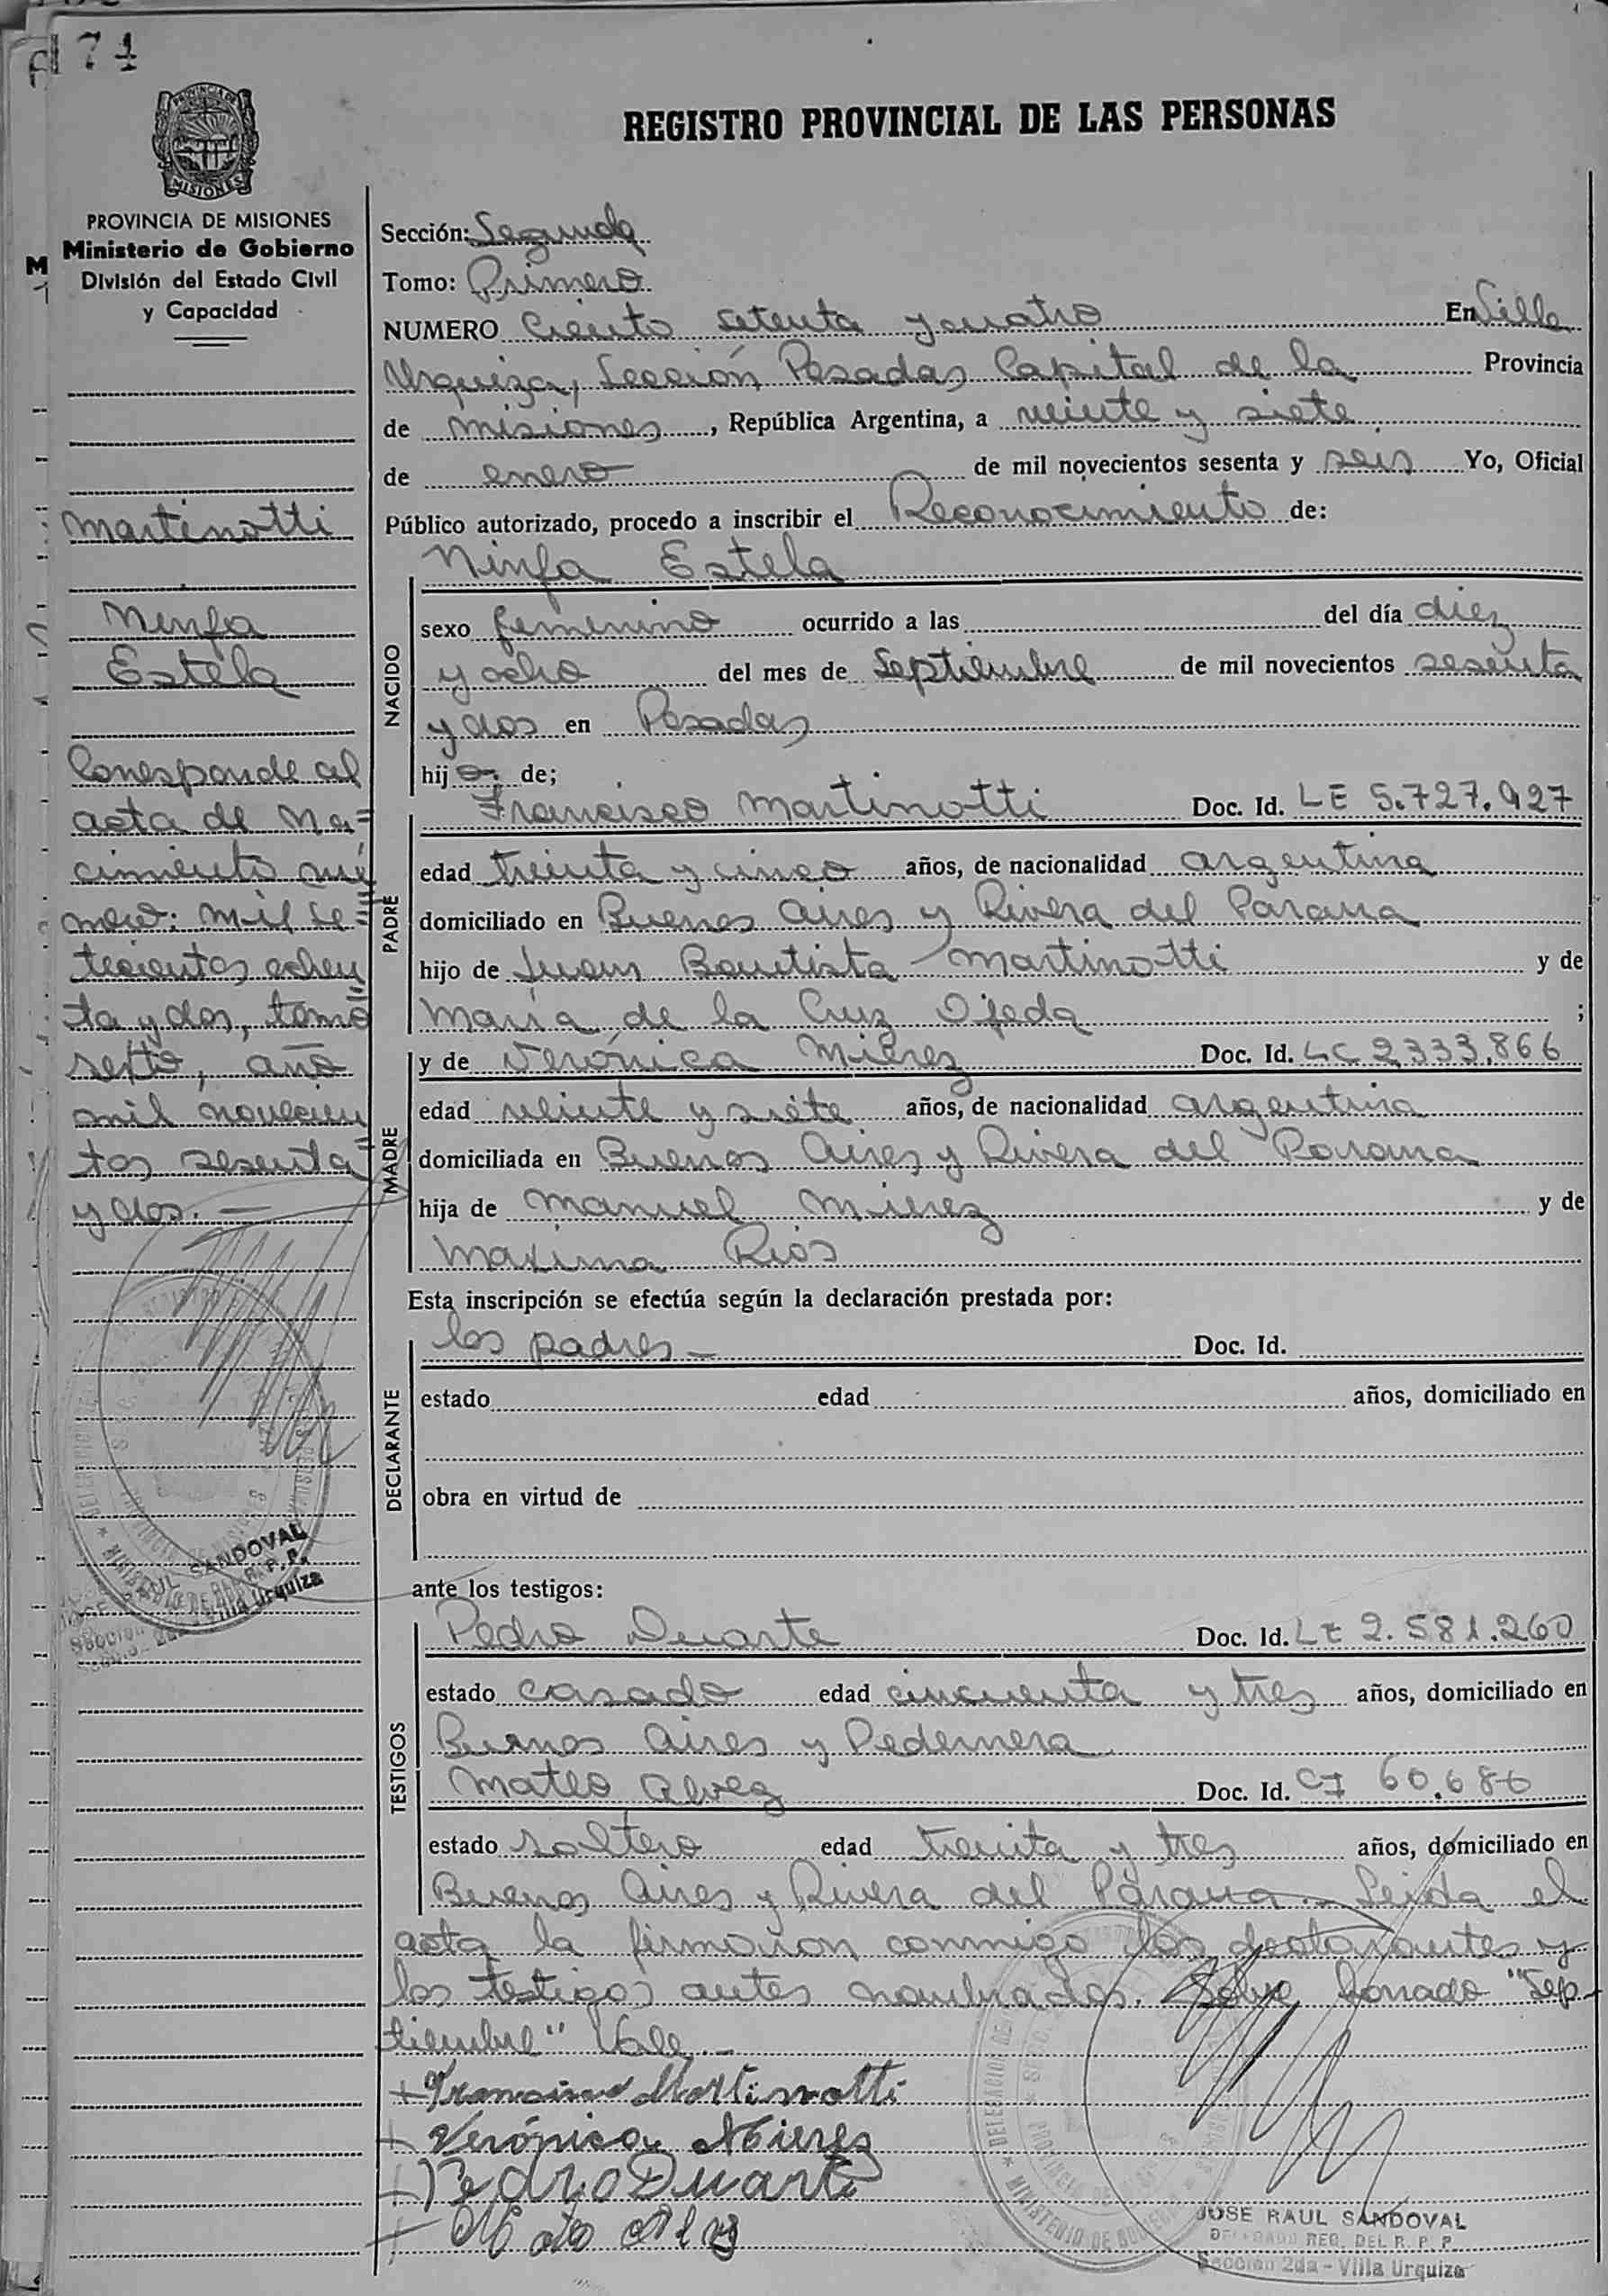 174
PROVINCIA DE MISIONES
Ministerio de Gobierno
División del Estado Civil
y Capacidad
Martinotti
Ninfa
Estela
Corresponde al
acta de na=
cimiento nú
mero: mil se=
tecientos ochen
ta y dos, tomo
sexto, año
mil novecien
tos sesenta
y dos. —
REGISTRO PROVINCIAL DE LAS PERSONAS
Sección: Segunda
Tomo: Primero
NUMERO Ciento setenta y cuatro En Villa
Urquiza, Sección Posadas Capital de la Provincia
de Misiones, República Argentina, a veinte y siete
de enero de mil novecientos sesenta y seis Yo, Oficial
Público autorizado, procedo a inscribir el Reconocimiento de:
Ninfa Estela
NACIDO
sexo femenino ocurrido a las del día diez
y ocho del mes de Septiembre de mil novecientos sesenta
y dos en Posadas
hija de;
PADRE
Francisco Martinotti Doc. Id. LE 5.727.927
edad treinta y cinco años, de nacionalidad argentina
domiciliado en Buenos Aires y Rivera del Parana
hijo de Juan Bautista Martinotti y de
María de la Cruz Ojeda ;
MADRE
y de Verónica Mierez Doc. Id. LC 2333.866
edad veinte y siete años, de nacionalidad argentina
domiciliada en Buenos Aires y Rivera del Parana
hija de Manuel Mierez y de
Maxima Rios
Esta inscripción se efectúa según la declaración prestada por:
DECLARANTE
los padres — Doc. Id.
estado edad años, domiciliado en
obra en virtud de
ante los testigos:
TESTIGOS
Pedro Duarte Doc. Id. LE 2.581.260
estado casado edad cincuenta y tres años, domiciliado en
Buenos Aires y Pedernera
Mateo Alvez Doc. Id. CI 60.686
estado soltero edad treinta y tres años, domiciliado en
Buenos Aires y Rivera del Parana. — Leida el
acta la firmaron conmigo los declarantes y
los testigos antes nombrados. Sobre borrado "Sep-
tiembre" Vale. —
Francisco Martinotti
Verónica Mierez
Pedro Duarte
JOSE RAUL SANDOVAL
DELEGADO REG. DEL R. P. P.
Sección 2da - Villa Urquiza